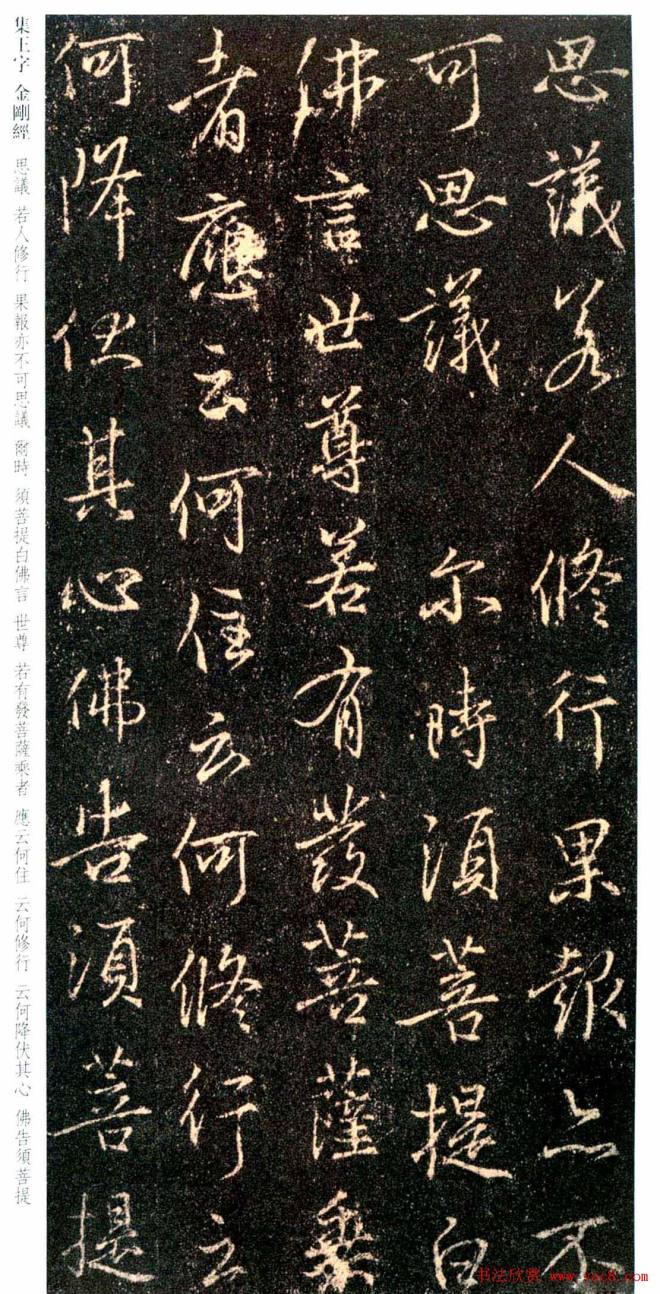 思議若人修行果報亦不
可思議 尔時須菩提白
佛言世尊若有發菩薩乘
者應云何住云何修行云
何降伏其心佛告須菩提
集王字 金剛經 思議 若人修行 果報亦不可思議 爾時 須菩提白佛言 世尊 若有發菩薩乘者 應云何住 云何修行 云何降伏其心 佛告須菩提
书法欣赏